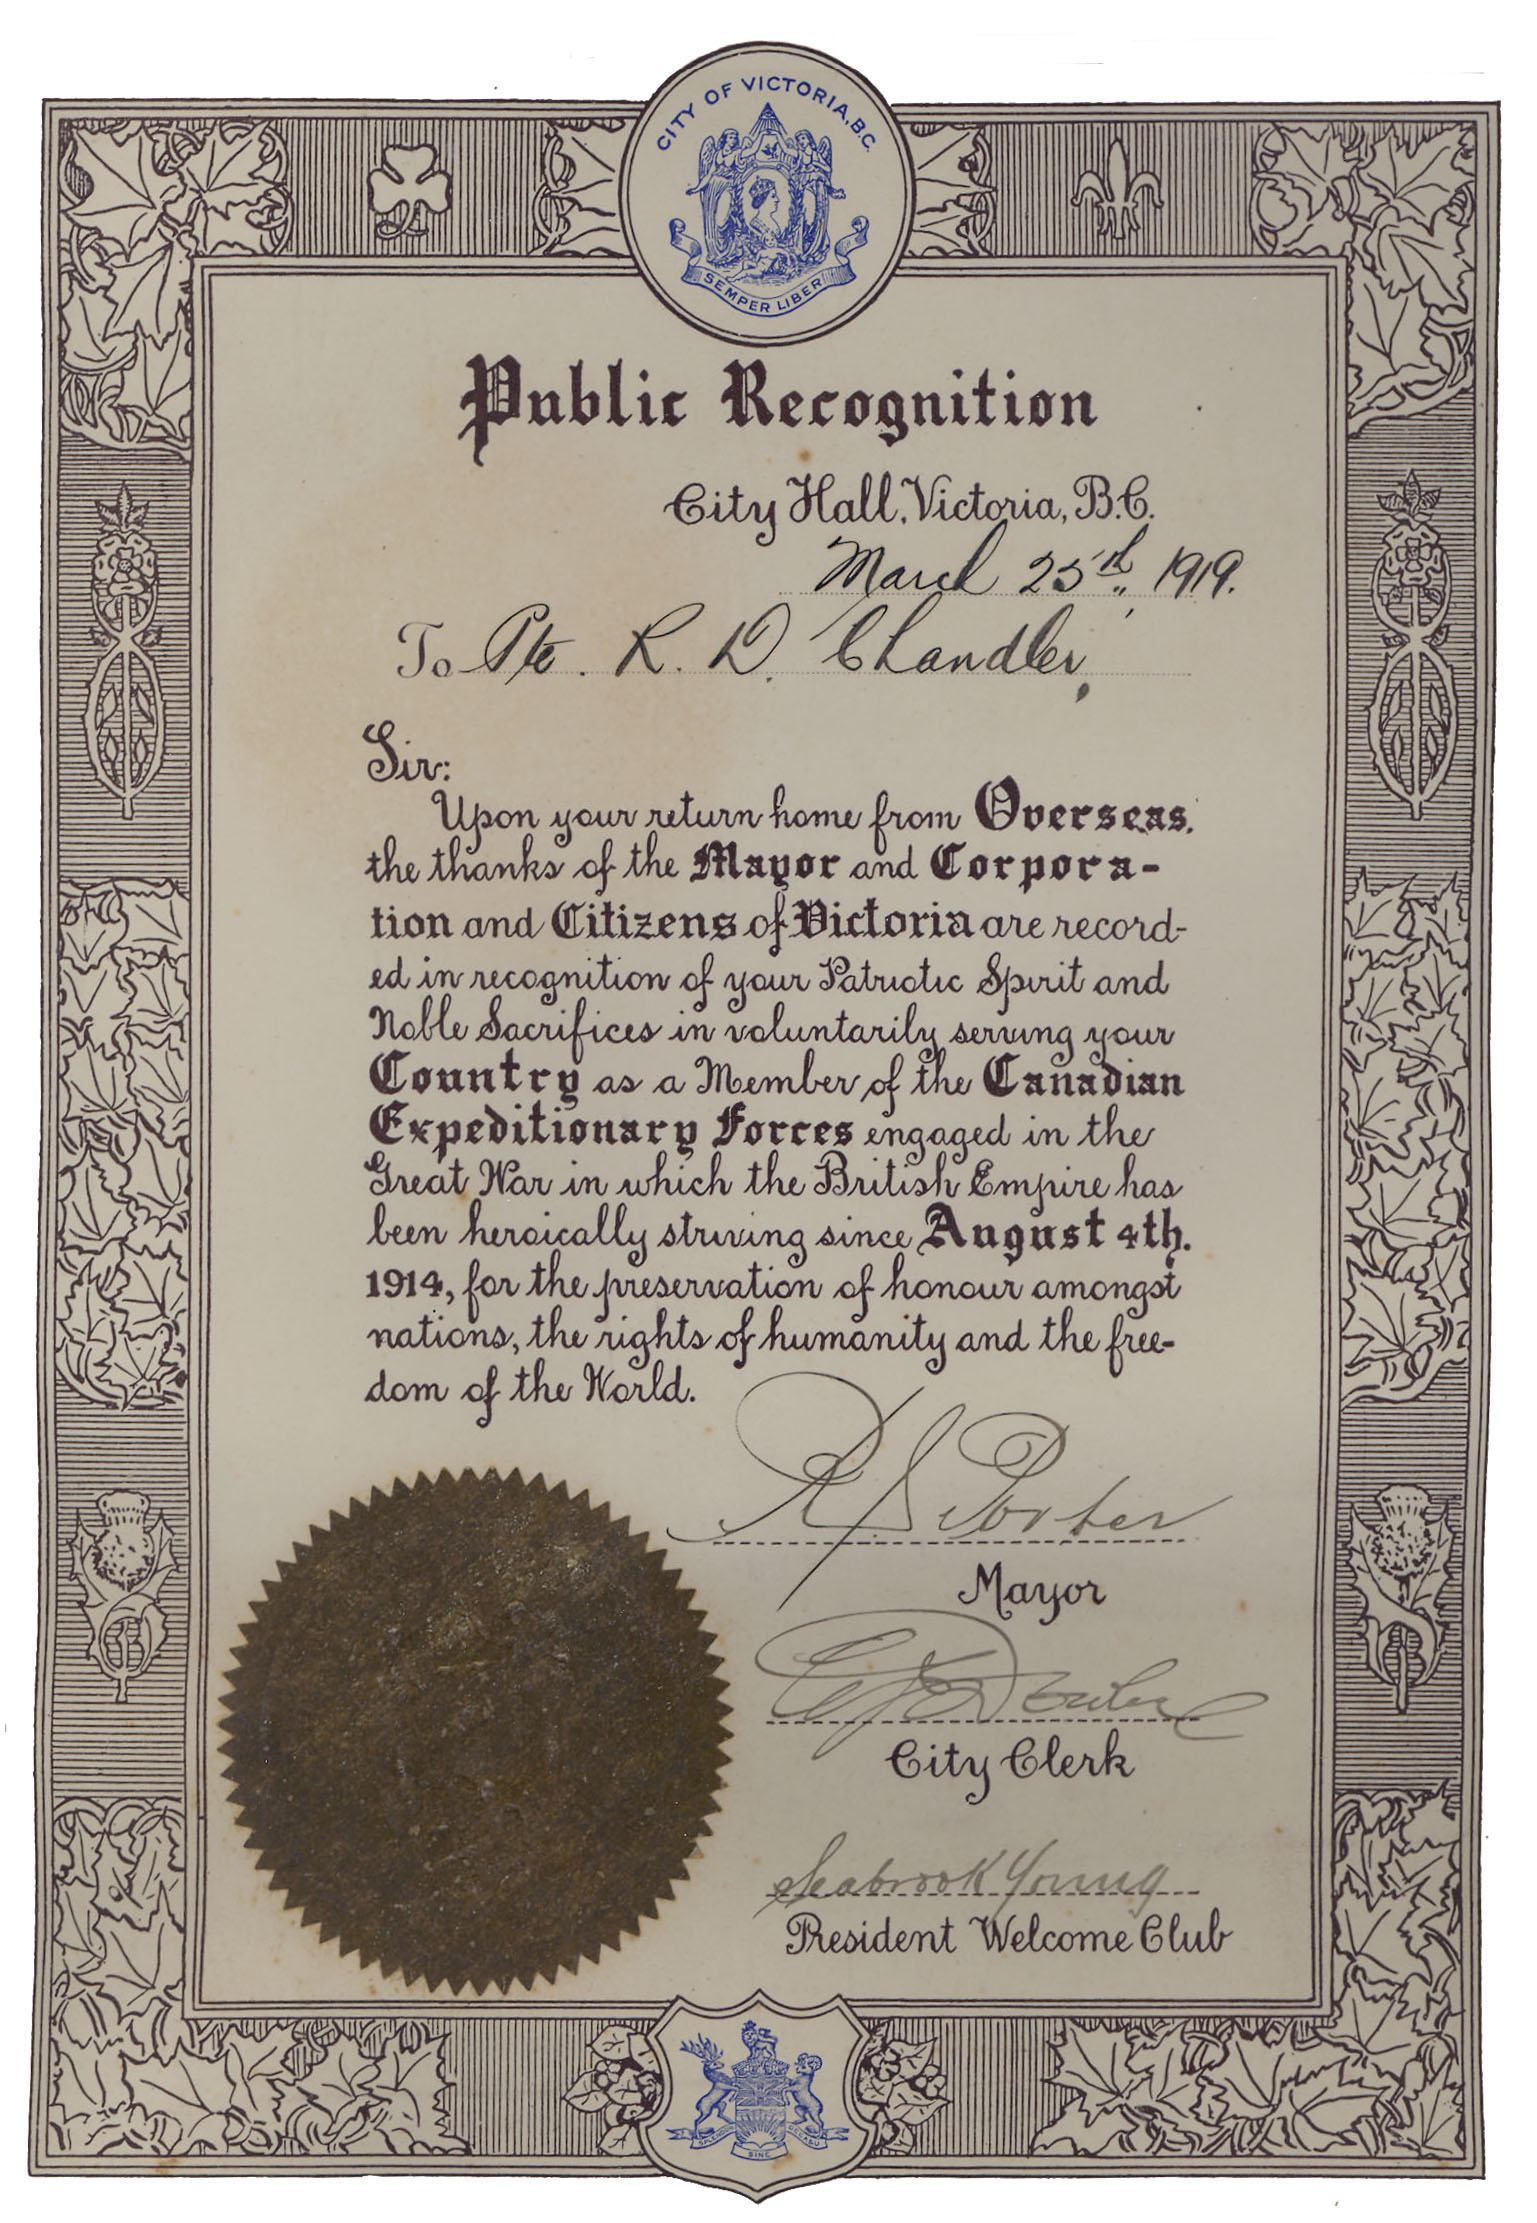 CITY OF VICTORIA, B.C.
SEMPER LIBER
Public Recognition
City Hall, Victoria, B.C.
March 25th, 1919.
To Pte. R. D. Chandler,
Sir:
Upon your return home from Overseas,
the thanks of the Mayor and Corpora-
tion and Citizens of Victoria are record-
ed in recognition of your Patriotic Spirit and
Noble Sacrifices in voluntarily serving your
Country as a Member of the Canadian
Expeditionary Forces engaged in the
Great War in which the British Empire has
been heroically striving since August 4th.
1914, for the preservation of honour amongst
nations, the rights of humanity and the free-
dom of the World.
R J Porter
Mayor
City Clerk
Seabrook Young
President Welcome Club
SPLENDOR SINE OCCASU